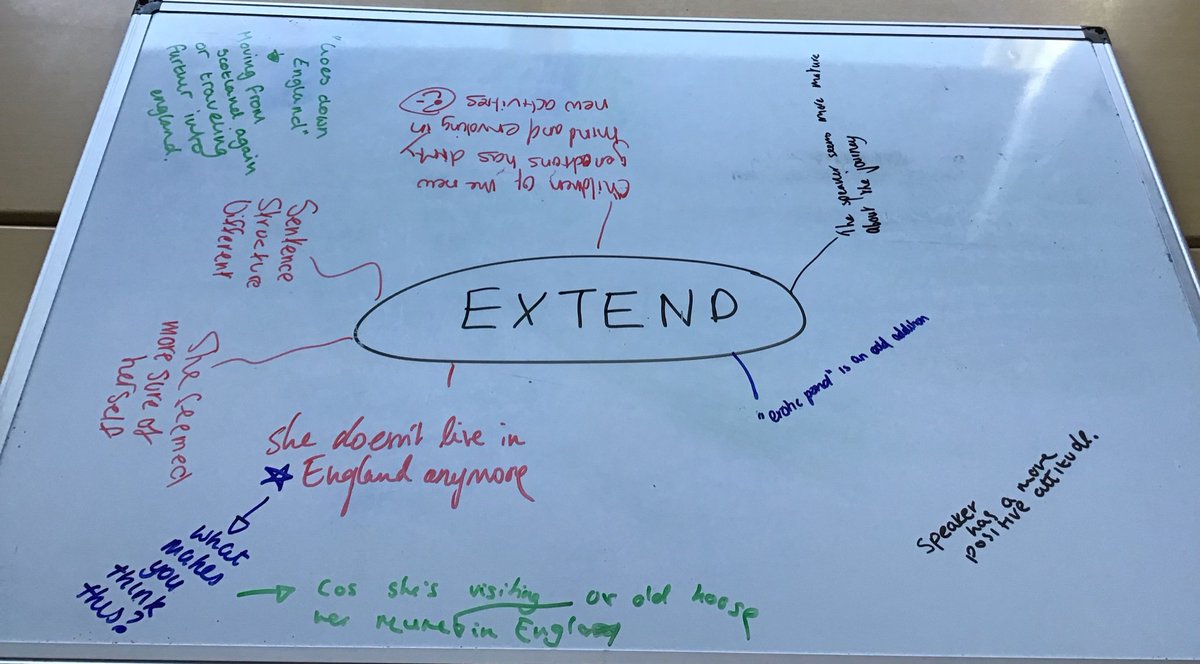 EXTEND
"Goes down
England"
Moving from
scotland again
or traveling
furtur into
england.
Children of the new
has dirty
mind and envoking in
new activites
The speaker seems more mature
about the journey
Sentence
Structure
Different
She seemed
more sure of
herself
she doesn't live in
England anymore
what
makes
you
think
this?
Cos she's visiting or old hoose
her in
" is an odd addition
Speaker
has a more
positive attitude.